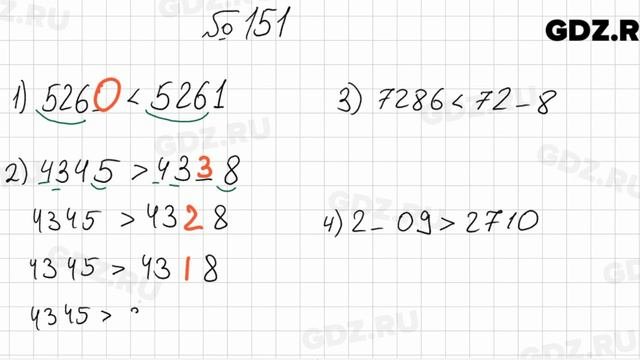 № 151
GDZ.R
1) 5260 < 5261
2) 4345 > 4338
4345 > 4328
4345 > 4318
4345 >
3) 7286 < 72_8
4) 2_09 > 2710
GDZ.RU
GDZ.RU
GDZ.RU
GDZ.RU